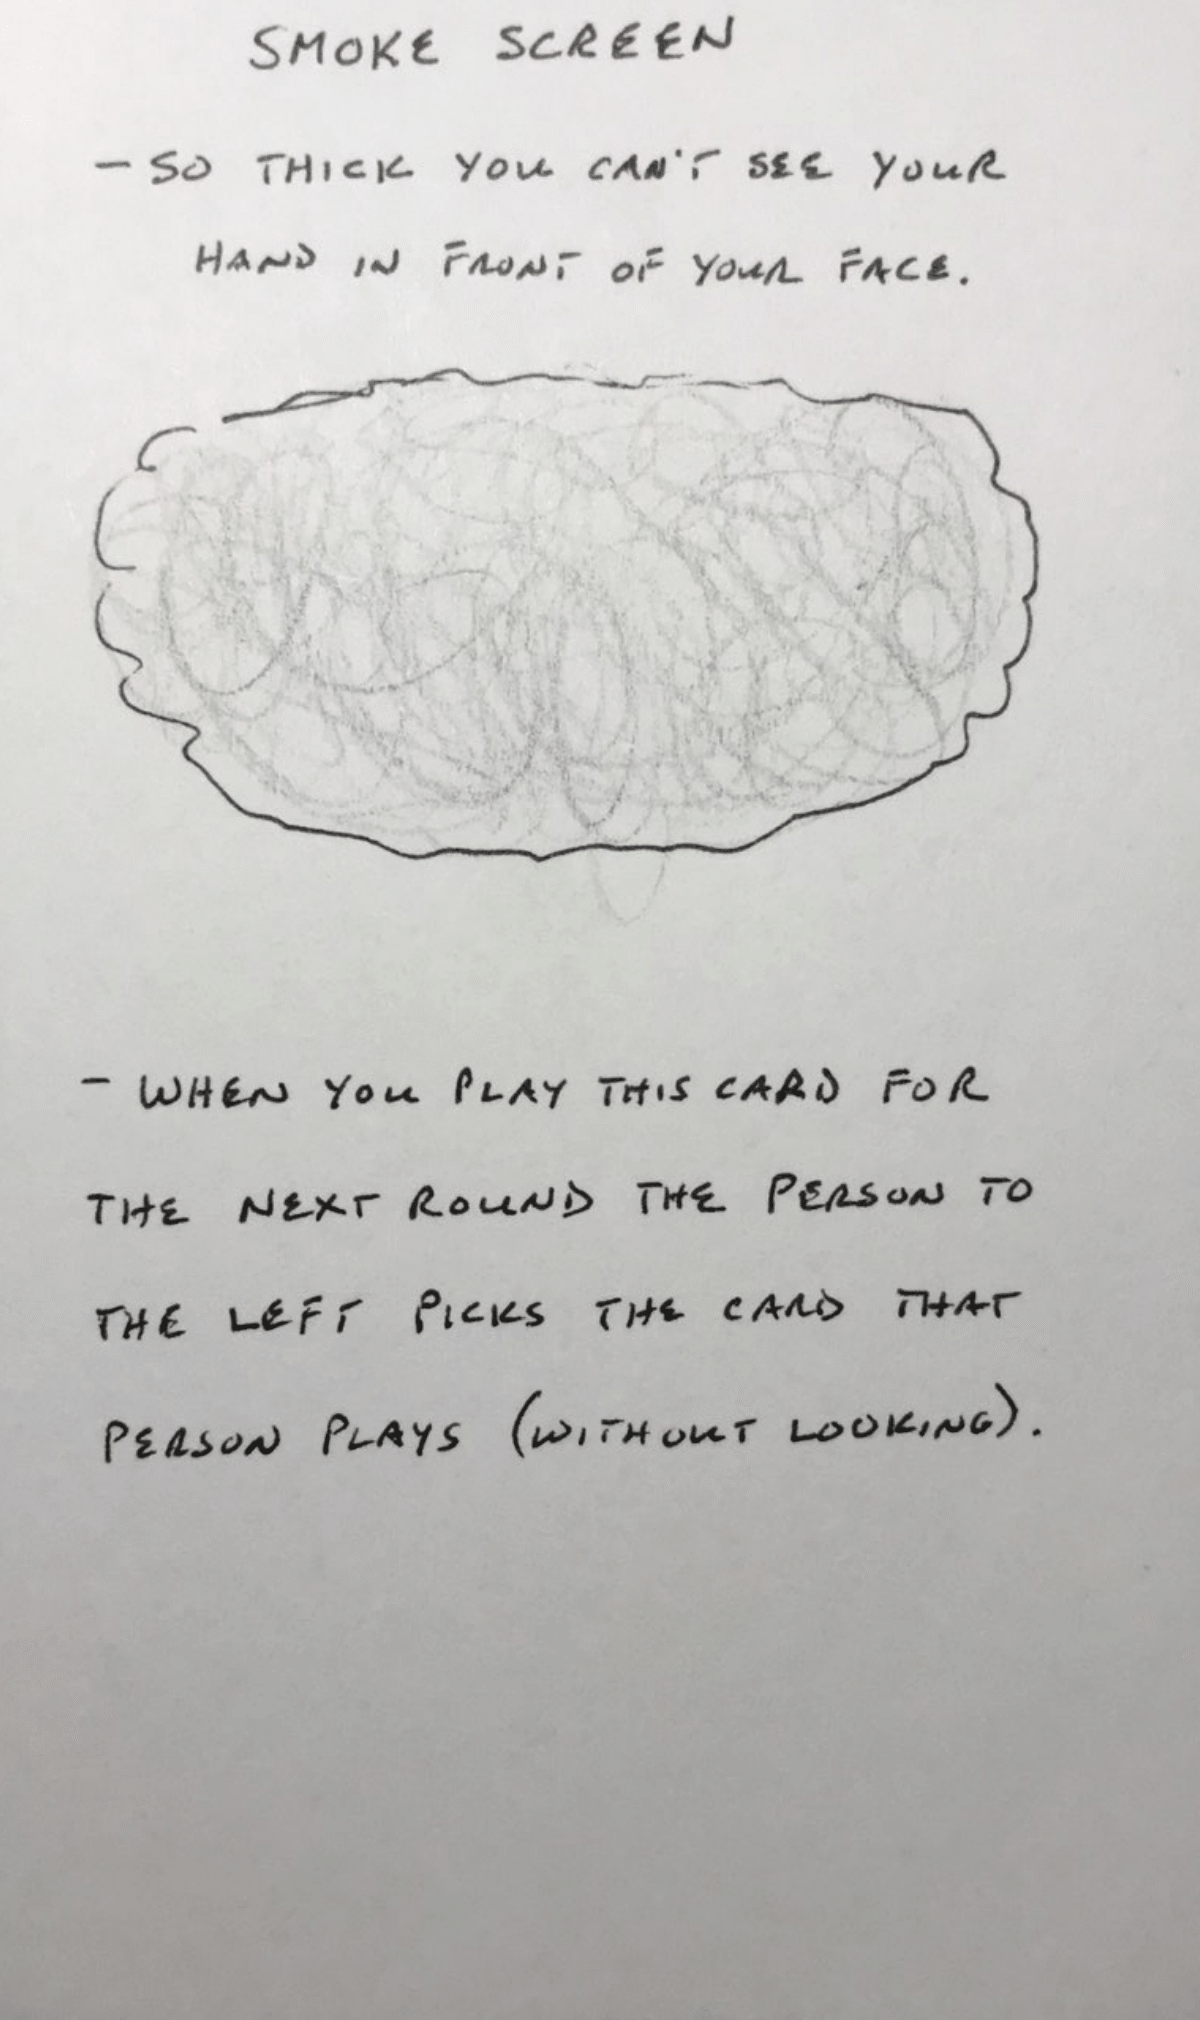 SMOKE SCREEN
- SO THICK YOU CAN'T SEE YOUR
HAND IN FRONT OF YOUR FACE.
- WHEN YOU PLAY THIS CARD FOR
THE NEXT ROUND THE PERSON TO
THE LEFT PICKS THE CARD THAT
PERSON PLAYS (WITHOUT LOOKING).